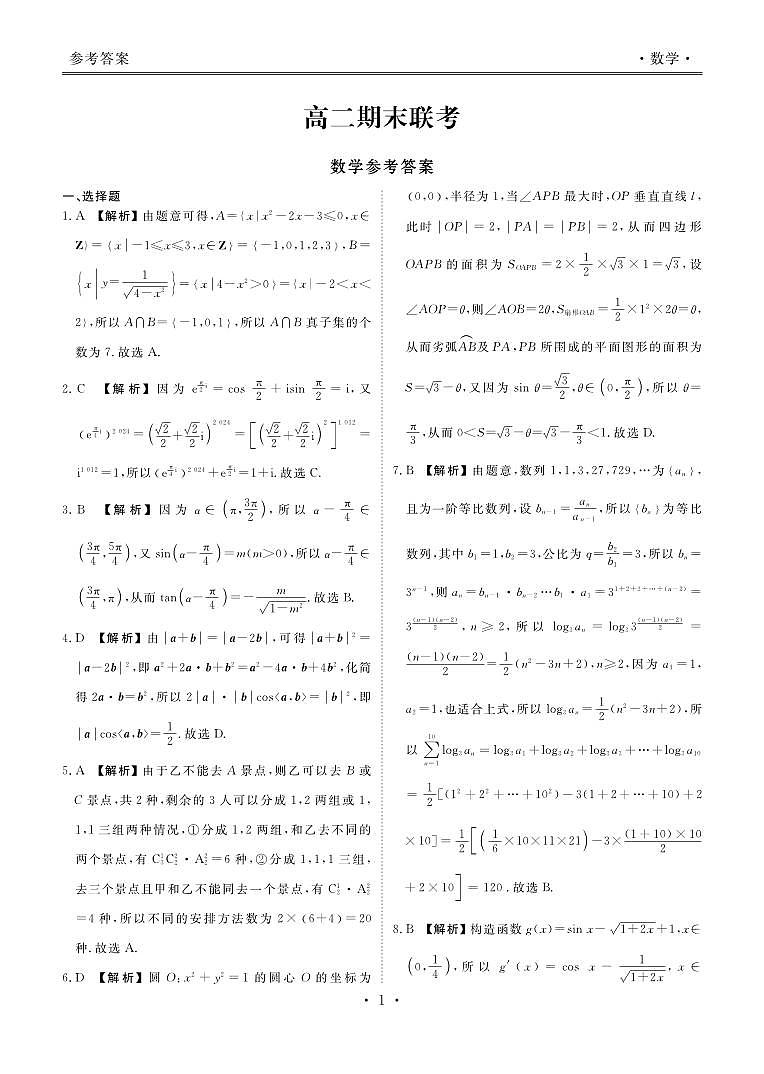 参考答案
·数学·
高二期末联考
数学参考答案
一、选择题
1. A 【解析】由题意可得,A={x|x²-2x-3≤0,x∈
Z}={x|-1≤x≤3,x∈Z}={-1,0,1,2,3},B=
{x|y=1/√(4-x²)}={x|4-x²>0}={x|-2<x<
2},所以A∩B={-1,0,1},所以A∩B真子集的个
数为7.故选A.
2. C 【解析】因为 e^(π/2 i)=cos π/2+isin π/2=i,又
(e^(π/4 i))^2 024=(√2/2+√2/2 i)^2 024=[(√2/2+√2/2 i)²]^1 012=
i^1 012=1,所以(e^(π/4 i))^2 024+e^(π/2 i)=1+i.故选C.
3. B 【解析】因为 α∈(π,3π/2),所以 α-π/4∈
(3π/4,5π/4),又sin(α-π/4)=m(m>0),所以α-π/4∈
(3π/4,π),从而tan(α-π/4)=-m/√(1-m²).故选B.
4. D 【解析】由|a+b|=|a-2b|,可得|a+b|²=
|a-2b|²,即a²+2a·b+b²=a²-4a·b+4b²,化简
得2a·b=b²,所以2|a|·|b|cos⟨a,b⟩=|b|²,即
|a|cos⟨a,b⟩=1/2.故选D.
5. A 【解析】由于乙不能去A景点,则乙可以去B或
C景点,共2种,剩余的3人可以分成1,2两组或1,
1,1三组两种情况,①分成1,2两组,和乙去不同的
两个景点,有C₃¹C₂²·A₂²=6种,②分成1,1,1三组,
去三个景点且甲和乙不能同去一个景点,有C₂¹·A₂²
=4种,所以不同的安排方法数为2×(6+4)=20
种.故选A.
6. D 【解析】圆O:x²+y²=1的圆心O的坐标为
(0,0),半径为1,当∠APB最大时,OP垂直直线l,
此时|OP|=2,|PA|=|PB|=2,从而四边形
OAPB的面积为S_OAPB=2×1/2×√3×1=√3,设
∠AOP=θ,则∠AOB=2θ,S_扇形OAB=1/2×1²×2θ=θ,
从而劣弧AB及PA,PB所围成的平面图形的面积为
S=√3-θ,又因为sin θ=√3/2,θ∈(0,π/2),所以θ=
π/3,从而0<S=√3-θ=√3-π/3<1.故选D.
7. B 【解析】由题意,数列1,1,3,27,729,…为{aₙ},
且为一阶等比数列,设bₙ₋₁=aₙ/aₙ₋₁,所以{bₙ}为等比
数列,其中b₁=1,b₂=3,公比为q=b₂/b₁=3,所以bₙ=
3^(n-1),则aₙ=bₙ₋₁·bₙ₋₂…b₁·a₁=3^(1+2+2+…+(n-2))=
3^((n-1)(n-2)/2),n≥2,所以log₃aₙ=log₃3^((n-1)(n-2)/2)=
(n-1)(n-2)/2=1/2(n²-3n+2),n≥2,因为a₁=1,
a₂=1,也适合上式,所以log₃aₙ=1/2(n²-3n+2),所
以 ∑_(n=1)^10 log₃aₙ=log₃a₁+log₃a₂+log₃a₃+…+log₃a₁₀
=1/2[(1²+2²+…+10²)-3(1+2+…+10)+2
×10]=1/2[(1/6×10×11×21)-3×(1+10)×10/2
+2×10]=120.故选B.
8. B 【解析】构造函数g(x)=sin x-√(1+2x)+1,x∈
(0,1/4),所以g′(x)=cos x-1/√(1+2x),x∈
·1·